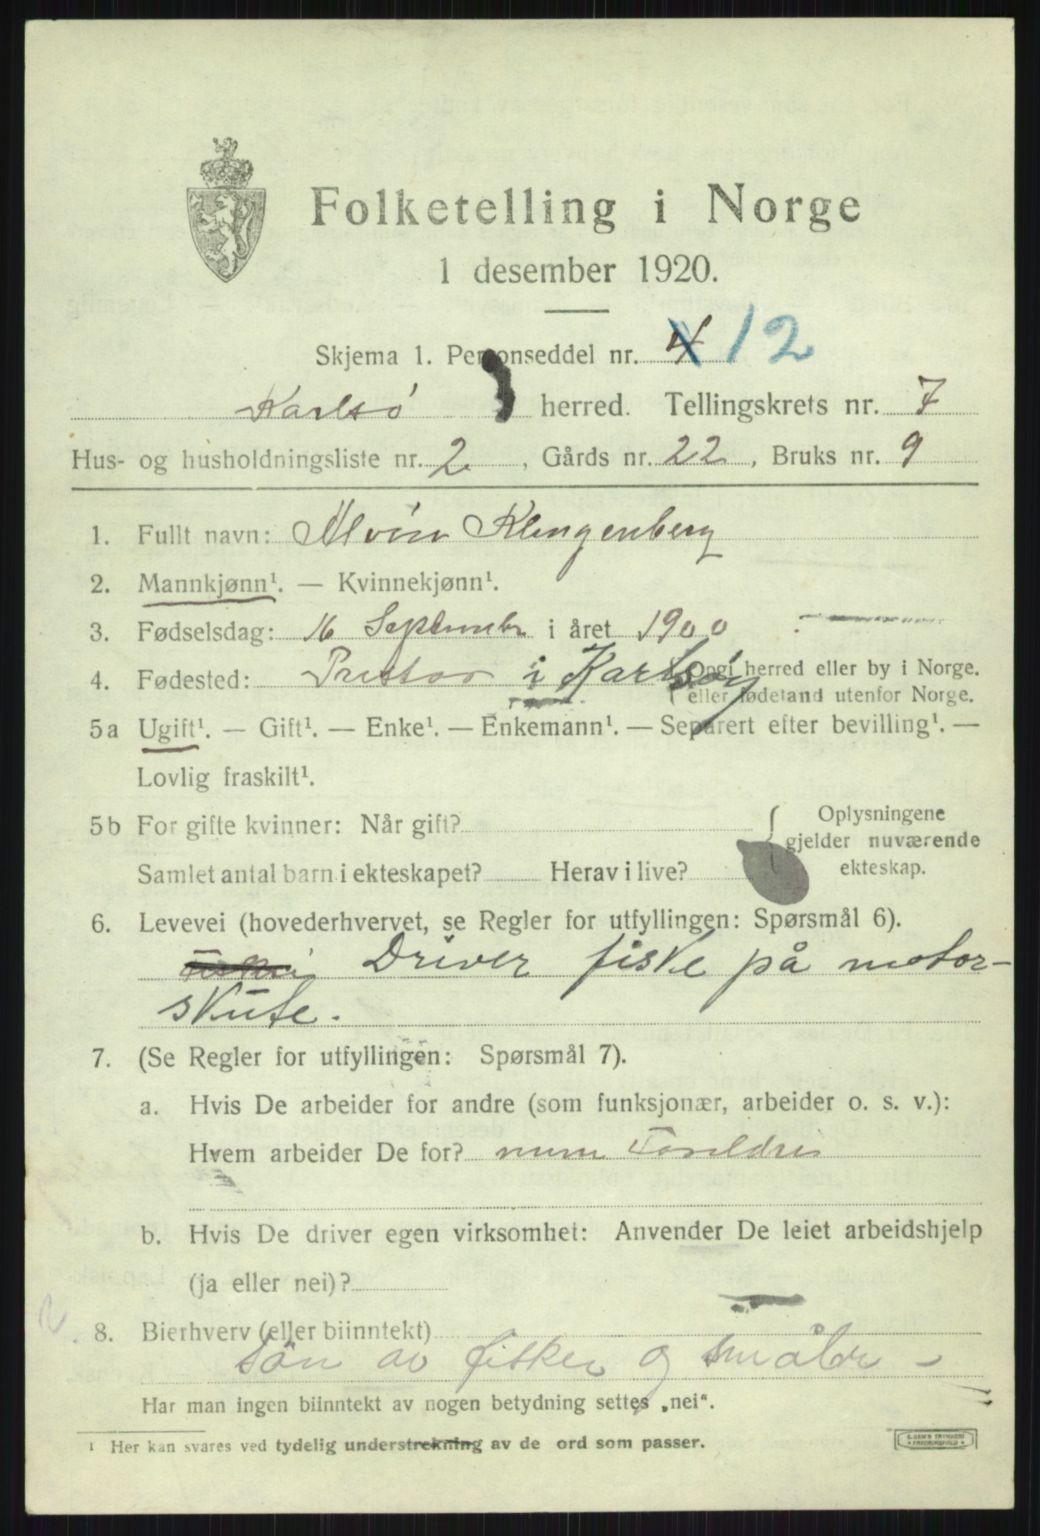 Folketelling i Norge
1 desember 1920.
Skjema 1. Personseddel nr. 4 12
Karlsø herred. Tellingskrets nr. 7
Hus- og husholdningsliste nr. 2, Gårds nr. 22, Bruks nr. 9
1. Fullt navn: Alvin Klingenberg
2. Mannkjønn¹. — Kvinnekjønn¹.
3. Fødselsdag: 16 September i året 1900
4. Fødested: i Karlsøy (Opgi herred eller by i Norge.
eller fødeland utenfor Norge.
5a Ugift¹. — Gift¹. — Enke¹. — Enkemann¹. — Separert efter bevilling¹. —
Lovlig fraskilt¹.
5b For gifte kvinner: Når gift? Oplysningene
gjelder nuværende
Samlet antal barn i ekteskapet? Herav i live? ekteskap.
6. Levevei (hovederhvervet, se Regler for utfyllingen: Spørsmål 6).
Driver fiske på motor-
skute.
7. (Se Regler for utfyllingen: Spørsmål 7).
a. Hvis De arbeider for andre (som funksjonær, arbeider o. s. v.):
Hvem arbeider De for? mine Foreldre
b. Hvis De driver egen virksomhet: Anvender De leiet arbeidshjelp
(ja eller nei)?
8. Bierhverv (eller biinntekt)
Søn av fisker og småbr -
Har man ingen biinntekt av nogen betydning settes „nei“.
¹ Her kan svares ved tydelig understrekning av de ord som passer.